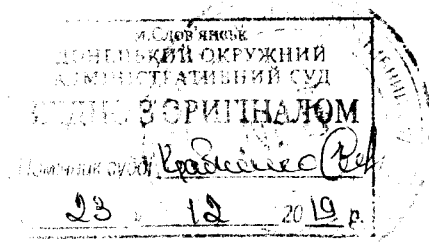 м.Слов'янськ
ДОНЕЦЬКИЙ ОКРУЖНИЙ
АДМІНІСТРАТИВНИЙ СУД
ЗГІДНО З ОРИГІНАЛОМ
Помічник судді
23 12 2019 р.